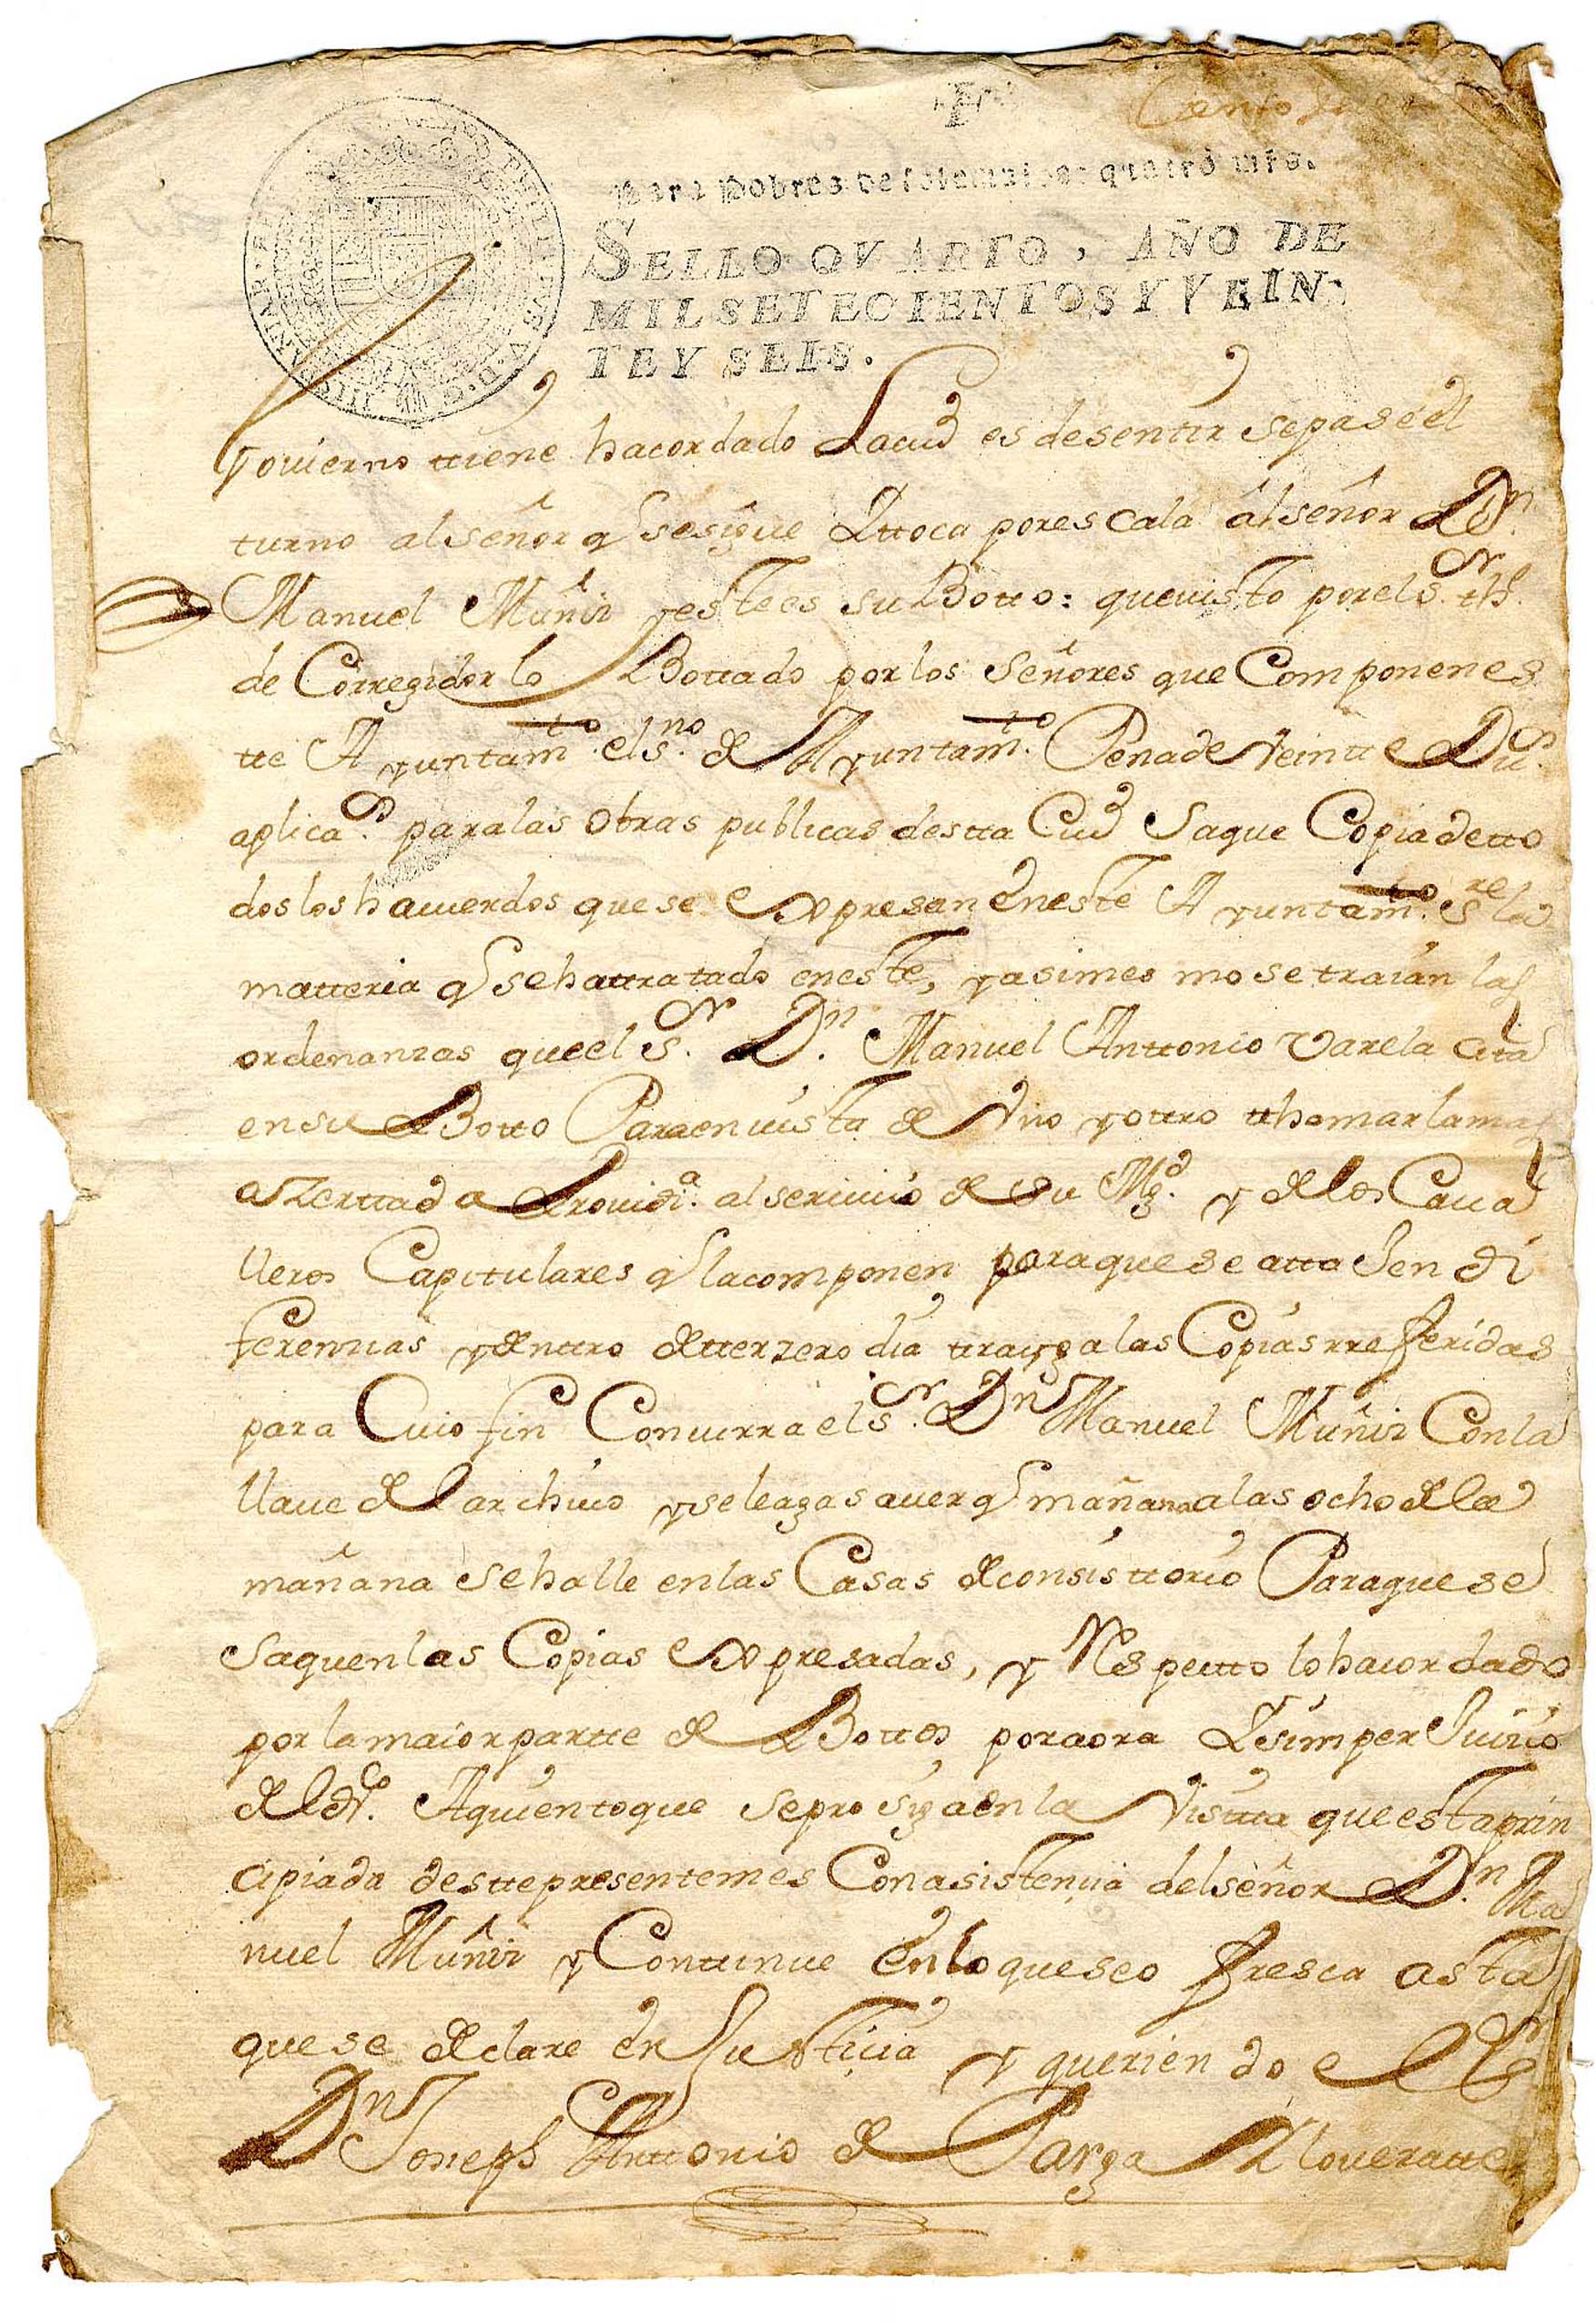 Para Pobres de solemnidad quatro mrs.
SELLO QVARTO, AÑO DE
MIL SETECIENTOS Y VEIN-
TE Y SEIS.
govierno ttiene hacordado La ciud es desentir sepase el
turno al señor q se sigue Y ttoca por escala al señor Dn.
Manuel Muñiz y este es su Botto: que visto por el sr. the.
de Corregidor lo Bottado por los señores que Componen es
tte Ayuntamto. el sno. de Ayuntamto. Pena de veintte Dus.
aplicas. para las obras publicas destta Ciud Saque Copia de tto
dos los hacuerdos que se expresan en este Ayuntamto. sre la
matteria q se ha ttratado en este, y asimesmo se traian las
ordenanzas que el sr. Dn. Manuel Anttonio Varela cita
en su Botto Para en vista de Uno y ottro tthomar la mas
azerttada Providia. al servicio de su Mgd. y de los Cava
lleros Capitulares q la componen para que se attajen di
ferencias y denttro de tterzero dia ttrayga las Copias rreferidas
para Cuio fin Concurra el sr. Dn Manuel Muñiz Con la
llave del archivo y se le aga saver q mañana a las ocho de la
mañana se halle en las Casas de consisttorio Para que se
saquen las Copias expresadas, y Respectto lo hacordado
por la maior partte de Bottos por aora Y sim perjuicio
del dro. A quien toque se prosiga en la Visitta que esta prin
cipiada deste presente mes Con asistencia del señor Dn. Ma
nuel Muñiz y Conttinue en lo que se ofresca asta
que se declare en Justicia y queriendo el sr
Dn Joseph Anttonio de Parga Y lloveratte